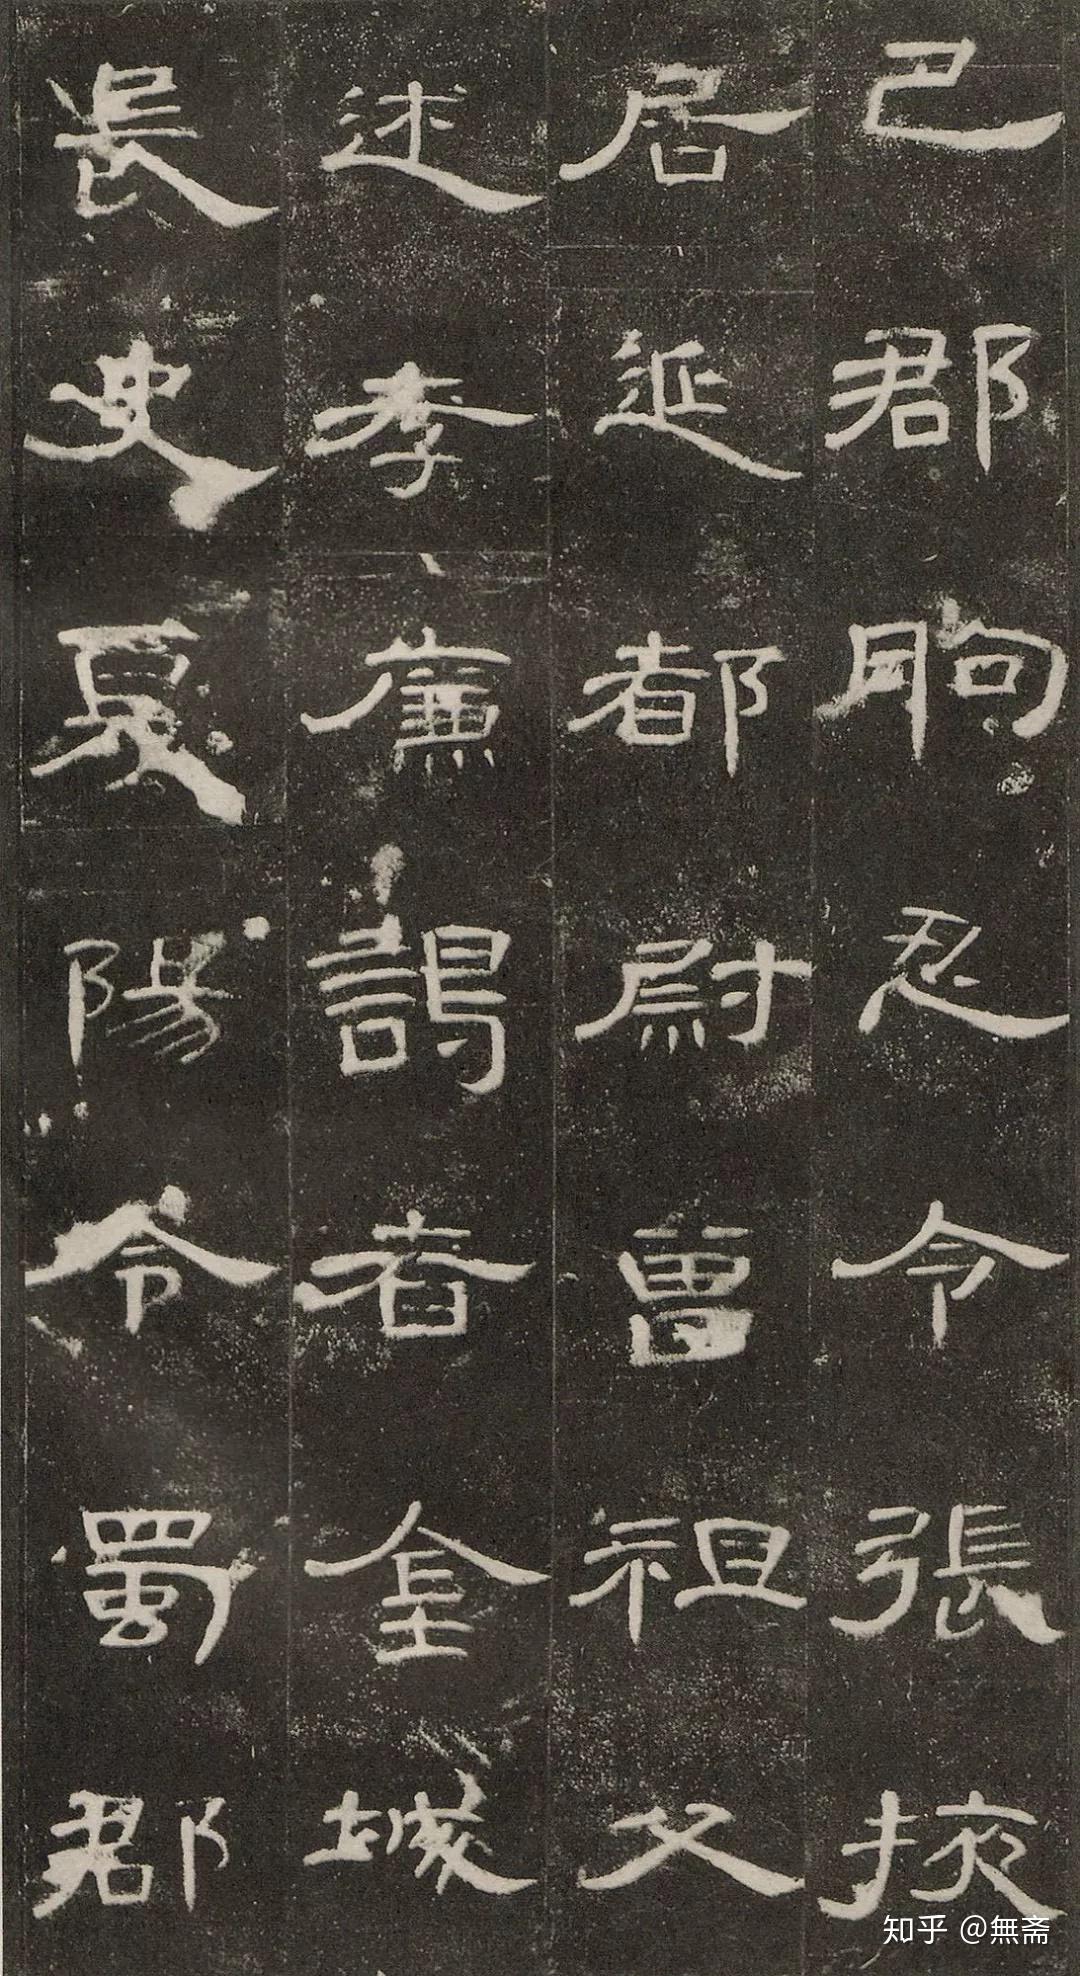 巴郡朐忍令張掖
居延都尉曾祖父
述孝廉謁者金城
長史夏陽令蜀郡
知乎 @無斋